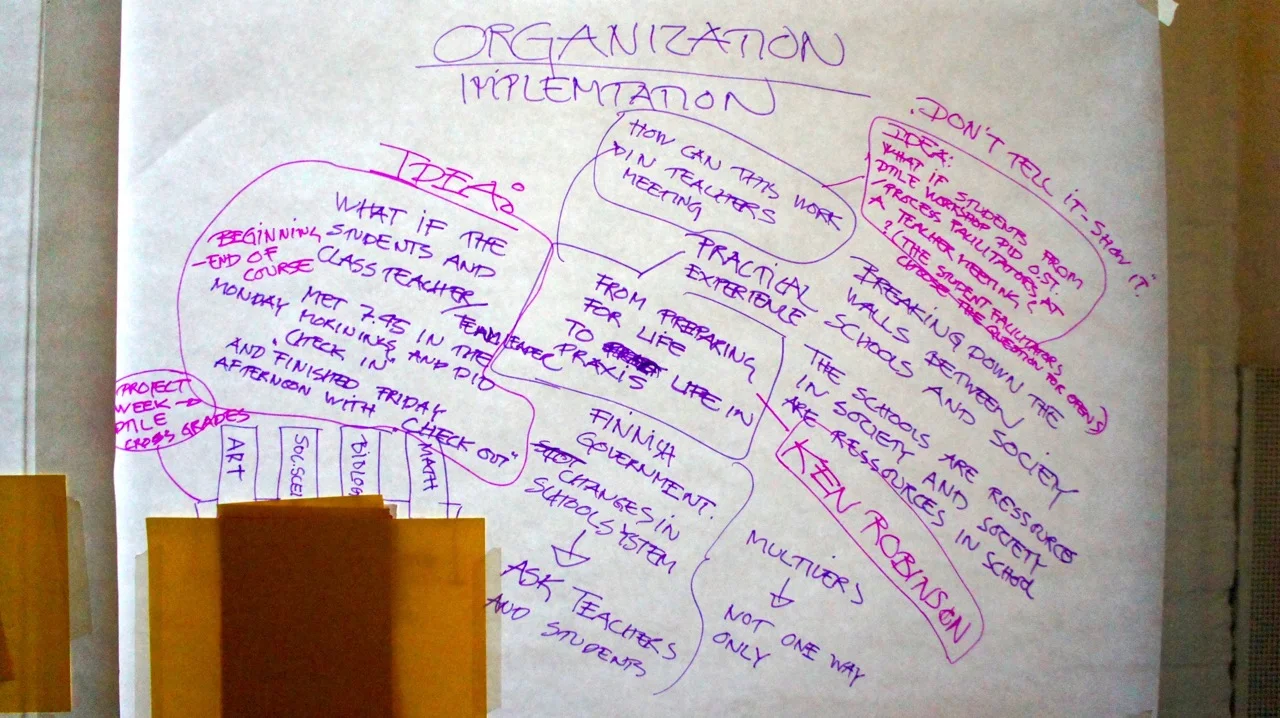 ORGANIZATION
IMPLEMTATION
"DON'T TELL IT - SHOW IT"
IDEA:
WHAT IF STUDENTS FROM
DTLE WORKSHOP DID OST
/PROCESS FACILITATORS AT
A TEACHER MEETING
? (THE STUDENT FACILITATORS
CHOOSE THE QUESTION FOR OPENS)
HOW CAN THIS WORK
IN TEACHERS
MEETING
IDEA:
WHAT IF THE
STUDENTS AND
CLASSTEACHER/
TEAMLEADER
MET 7.45 IN THE
MONDAY MORNINGS AND DID
"CHECK IN"
AND FINISHED FRIDAY
AFTERNOON WITH
"CHECK OUT"
BEGINNING
- END OF
COURSE
PROJECT
WEEK →
DTLE
CROSS GRADES
ART
SOC.SCEI
BIOLOG
MATH
PRACTICAL
EXPERIENCE
FROM PREPARING
FOR LIFE
TO LIFE IN
PRAXIS
BREAKING DOWN THE
WALLS BETWEEN
SCHOOLS AND SOCIETY
THE SCHOOLS ARE RESSOURCES
IN SOCIETY AND SOCIETY
ARE RESSOURCES IN SCHOOL
KEN ROBINSON
FINNISH
GOVERNMENT.
CHANGES IN
SCHOOLSYSTEM
↓
ASK TEACHERS
AND STUDENTS
MULTIVERS
↓
NOT ONE WAY
ONLY